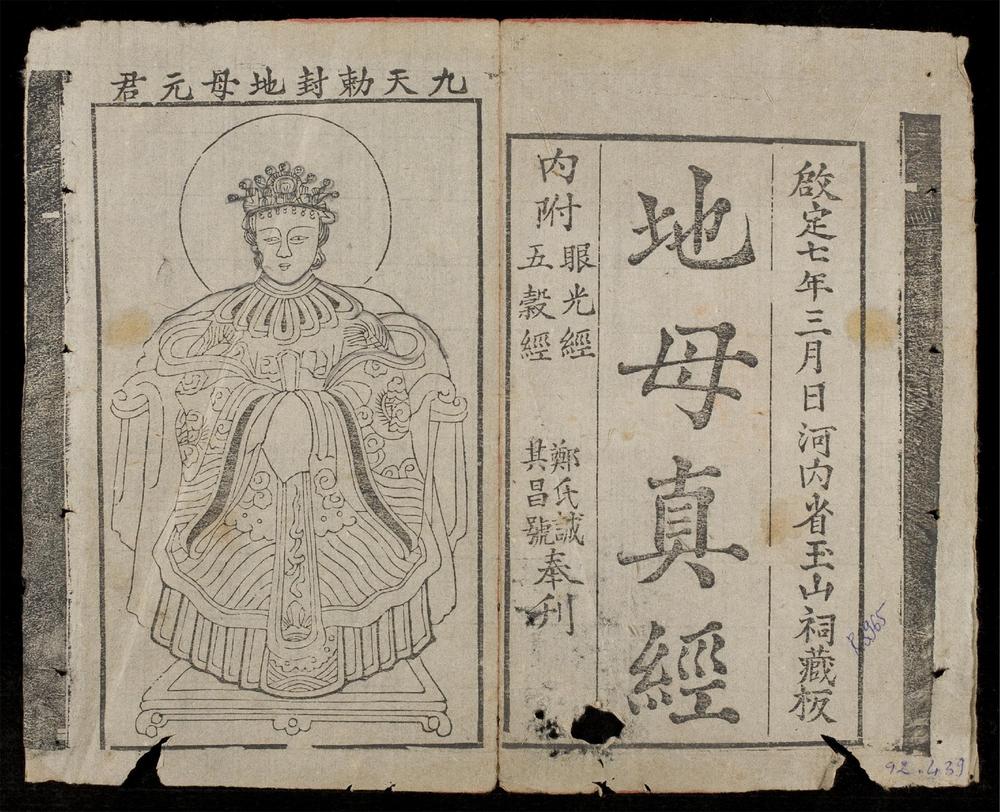 啟定七年三月日河内省玉山祠藏板
地母真經
内附
眼光經
五穀經
鄭氏誠
其昌號
奉刋
九天勅封地母元君
92.4.39